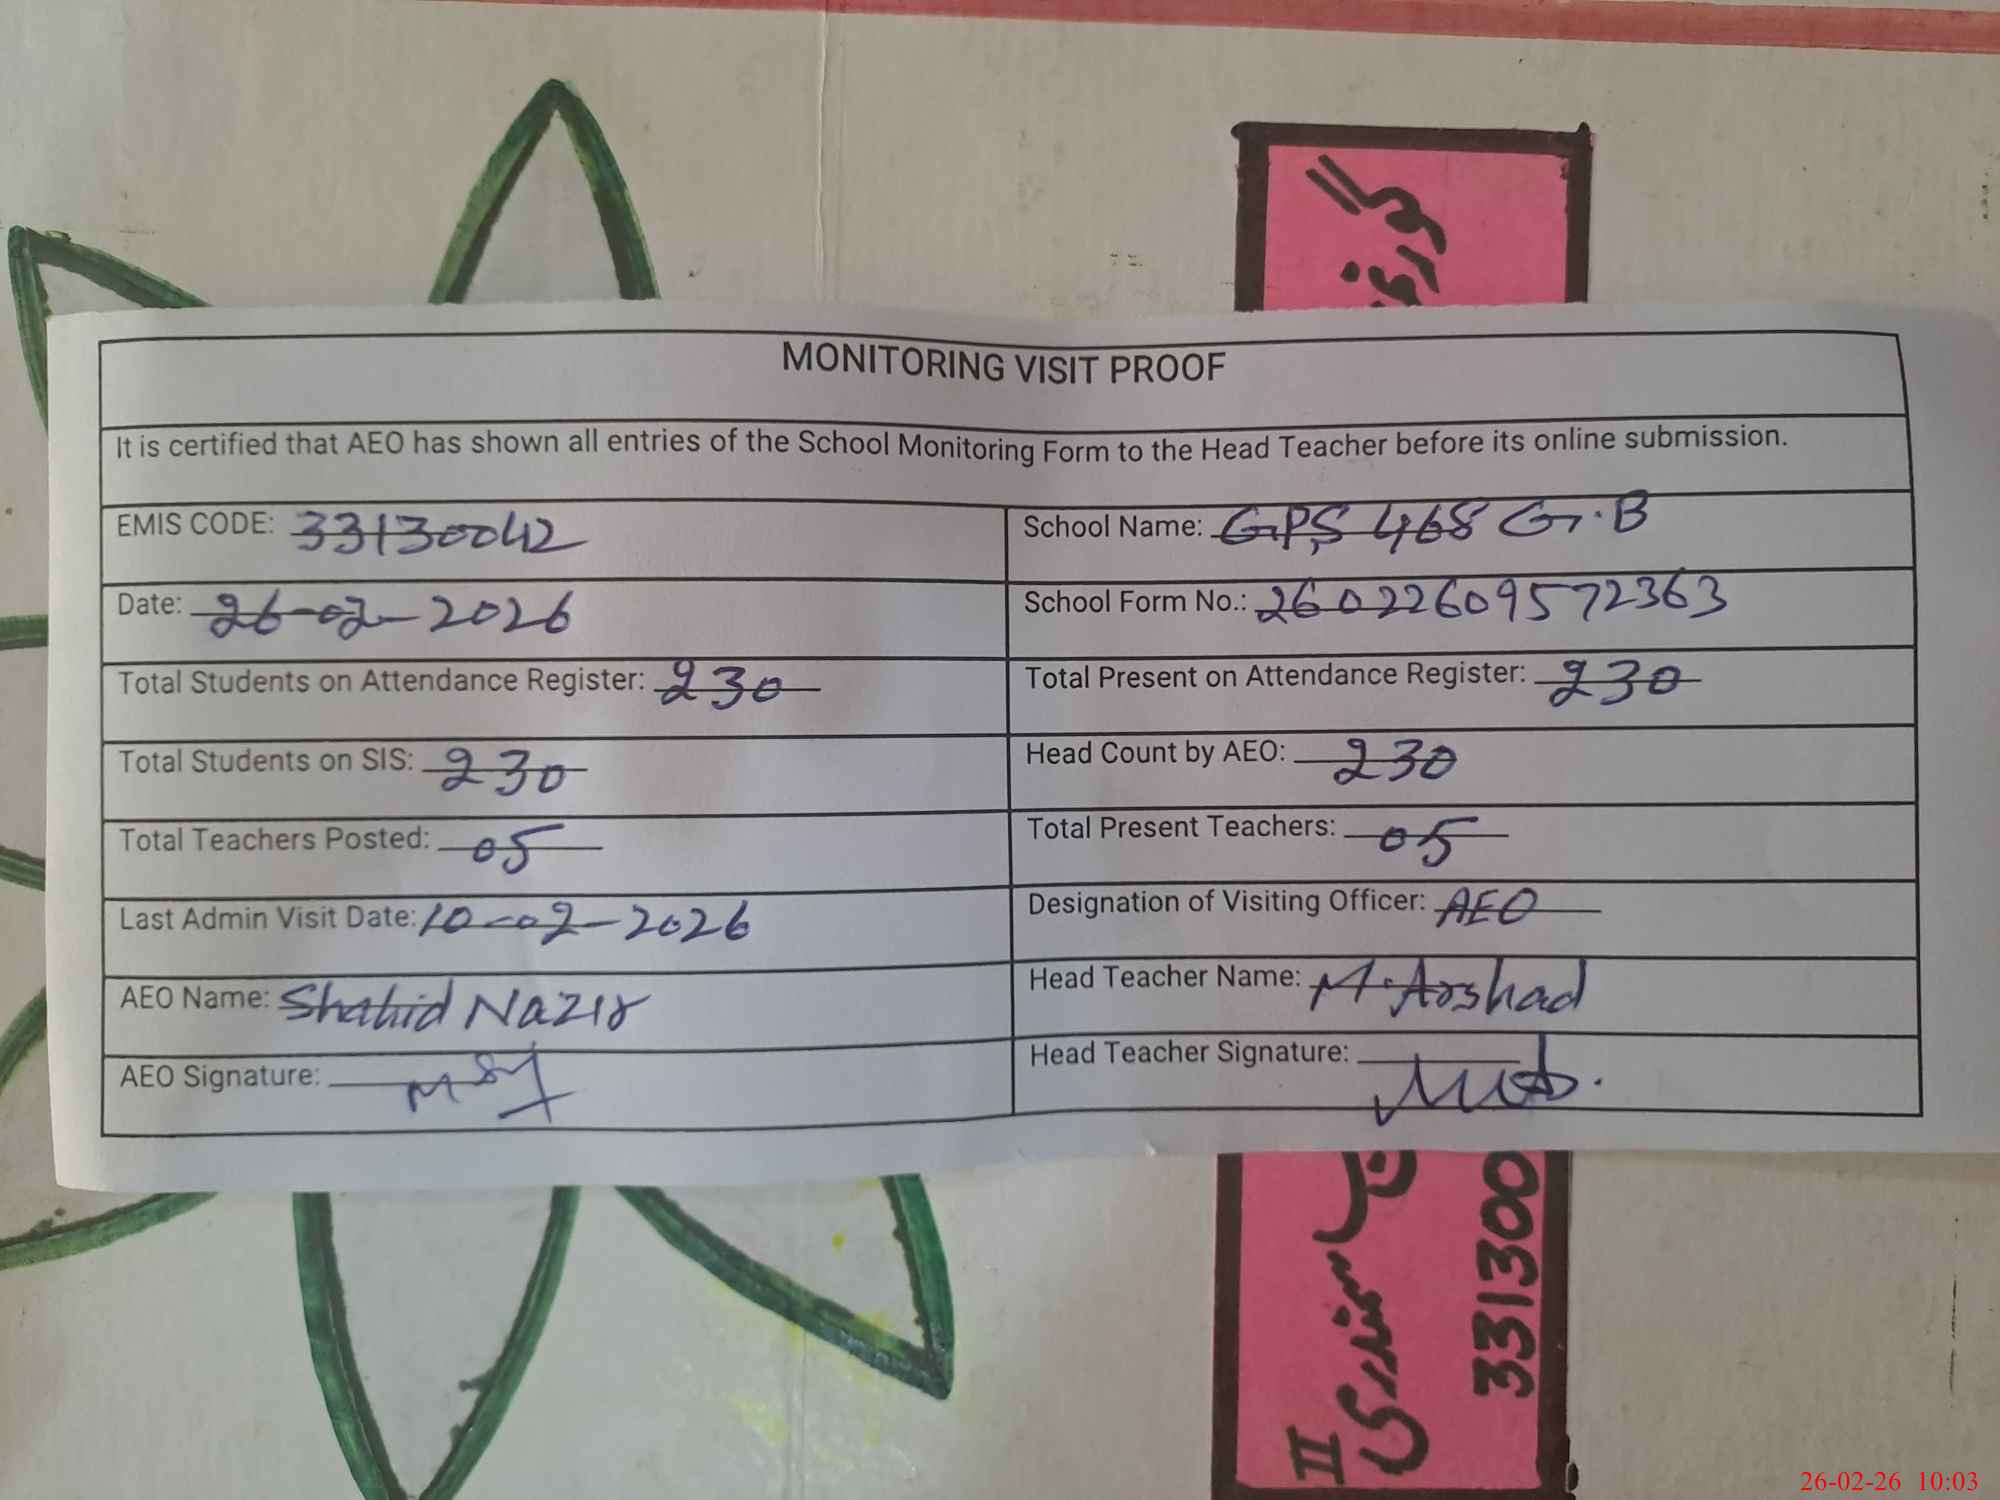 گورنمنٹ
MONITORING VISIT PROOF
It is certified that AEO has shown all entries of the School Monitoring Form to the Head Teacher before its online submission.
EMIS CODE: 33130042
School Name: GPS 468 G.B
Date: 26-02-2026
School Form No.: 26022609572363
Total Students on Attendance Register: 230
Total Present on Attendance Register: 230
Total Students on SIS: 230
Head Count by AEO: 230
Total Teachers Posted: 05
Total Present Teachers: 05
Last Admin Visit Date: 10-02-2026
Designation of Visiting Officer: AEO
AEO Name: Shahid Nazir
Head Teacher Name: M. Arshad
AEO Signature:
Head Teacher Signature:
سمندری
II
331300
26-02-26 10:03